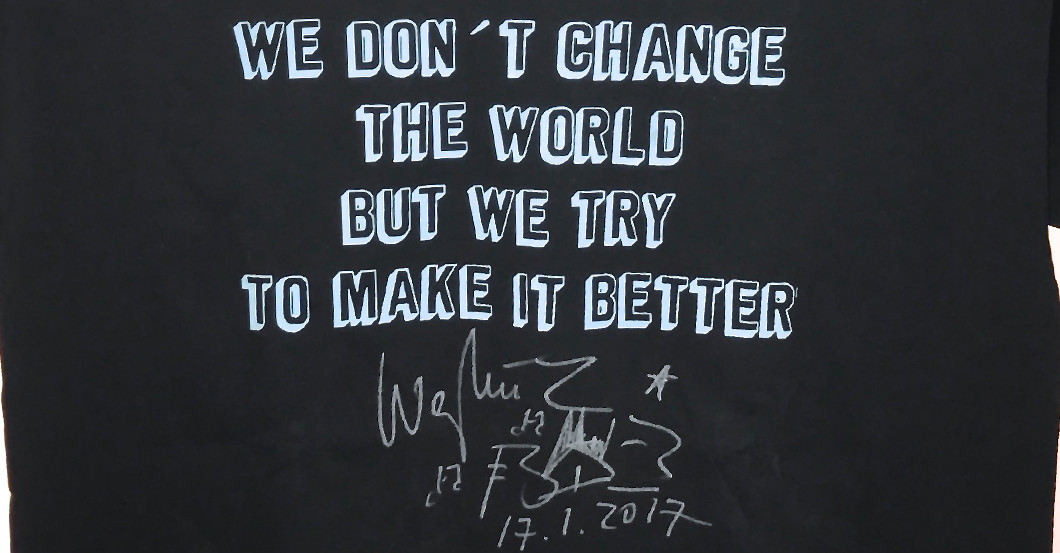 WE DON´T CHANGE
THE WORLD
BUT WE TRY
TO MAKE IT BETTER
17.1.2017